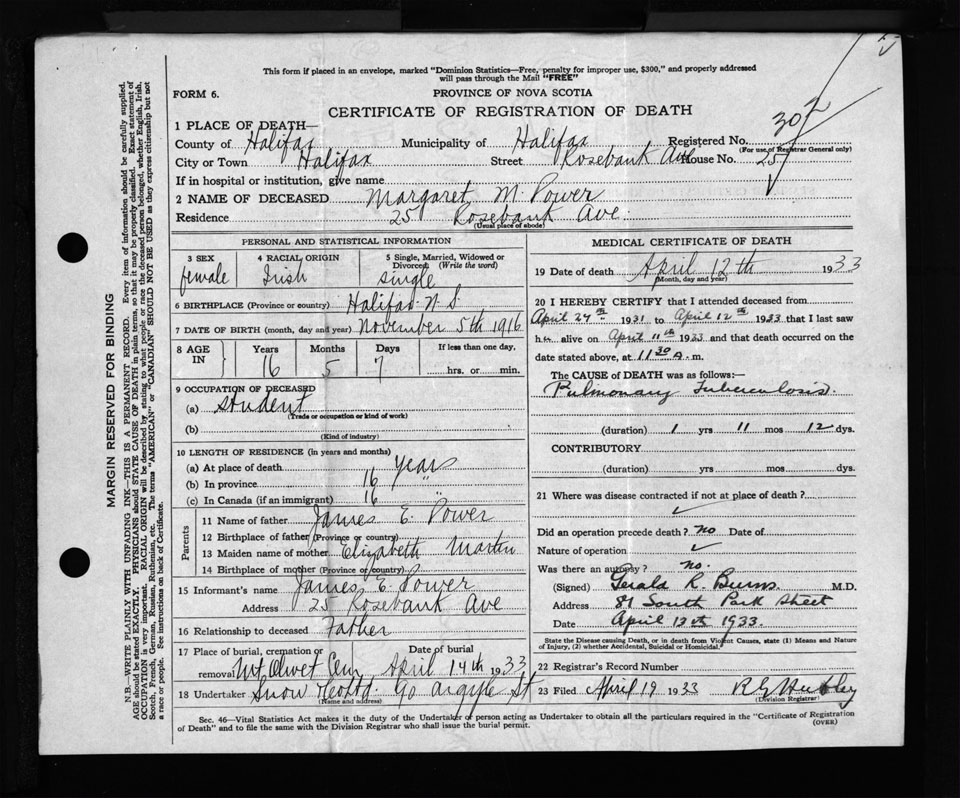 This form if placed in an envelope, marked "Dominion Statistics—Free, penalty for improper use, $300," and properly addressed
will pass through the Mail "FREE"
FORM 6.
PROVINCE OF NOVA SCOTIA
CERTIFICATE OF REGISTRATION OF DEATH
1 PLACE OF DEATH—
County of Halifax Municipality of Halifax Registered No. 302
(For use of Registrar General only)
City or Town Halifax Street Rosebank Ave House No. 25
If in hospital or institution, give name
2 NAME OF DECEASED Margaret M. Power
Residence 25 Rosebank Ave
(Usual place of abode)
PERSONAL AND STATISTICAL INFORMATION
3 SEX 4 RACIAL ORIGIN 5 Single, Married, Widowed or
Divorced (Write the word)
female Irish single
6 BIRTHPLACE (Province or country) Halifax N.S.
7 DATE OF BIRTH (month, day and year) November 5th 1916
8 AGE IN Years Months Days If less than one day.
16 5 7 hrs. or min.
9 OCCUPATION OF DECEASED
(a) Student
(Trade or occupation or kind of work)
(b)
(Kind of industry)
10 LENGTH OF RESIDENCE (in years and months)
(a) At place of death years
(b) In province 16 "
(c) In Canada (if an immigrant) 16
Parents
11 Name of father James E. Power
12 Birthplace of father (Province or country)
13 Maiden name of mother Elizabeth Martin
14 Birthplace of mother (Province or country)
15 Informant's name James E. Power
Address 25 Rosebank Ave
16 Relationship to deceased Father
17 Place of burial, cremation or Date of burial
removal Mt Olivet Cem April 14th 1933
18 Undertaker Snow & Co Ltd. 90 Argyle St
(Name and address)
MEDICAL CERTIFICATE OF DEATH
19 Date of death April 12th 1933
(Month, day and year)
20 I HEREBY CERTIFY that I attended deceased from
April 29th 1931 to April 12th 1933 that I last saw
her alive on April 11th 1933 and that death occurred on the
date stated above, at 11 30 A. m.
The CAUSE of DEATH was as follows:—
Pulmonary Tuberculosis.
(duration) 1 yrs 11 mos 12 dys.
CONTRIBUTORY
(duration) yrs. mos. dys.
21 Where was disease contracted if not at place of death?
Did an operation precede death? no Date of
Nature of operation
Was there an autopsy? no.
(Signed) Gerald R. Burns M.D.
Address 81 South Park Street
Date April 13th 1933.
State the Disease causing Death, or in death from Violent Causes, state (1) Means and Nature
of Injury, (2) whether Accidental, Suicidal or Homicidal.
22 Registrar's Record Number
23 Filed April 19 1933
(Division Registrar)
Sec. 46—Vital Statistics Act makes it the duty of the Undertaker or person acting as Undertaker to obtain all the particulars required in the "Certificate of Registration
of Death" and to file the same with the Division Registrar who shall issue the burial permit.
(OVER)
MARGIN RESERVED FOR BINDING
N.B.—WRITE PLAINLY WITH UNFADING INK—THIS IS A PERMANENT RECORD. Every item of information should be carefully supplied.
AGE should be stated EXACTLY. PHYSICIANS should STATE CAUSE OF DEATH in plain terms, so that it may be properly classified. Exact statement of
OCCUPATION is very important. RACIAL ORIGIN will be described by stating to what people or race the deceased person belonged, whether English, Irish,
Scotch, French, German, Russian, Ruthenian, etc. The terms "AMERICAN" or "CANADIAN" SHOULD NOT BE USED as they express citizenship but not
a race or people. See instructions on back of Certificate.